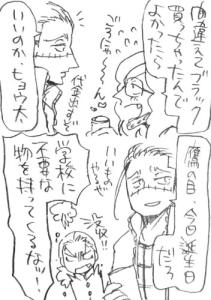 間違えてブラック
買っちゃったんで
よかったら
どうぞ〜〜〜ん
いいのか、ヒョウ太
鷹の目、今日誕生日
だろ
いいもの
やるぜ
学校に
不要な
物を持ってくるなッ!!